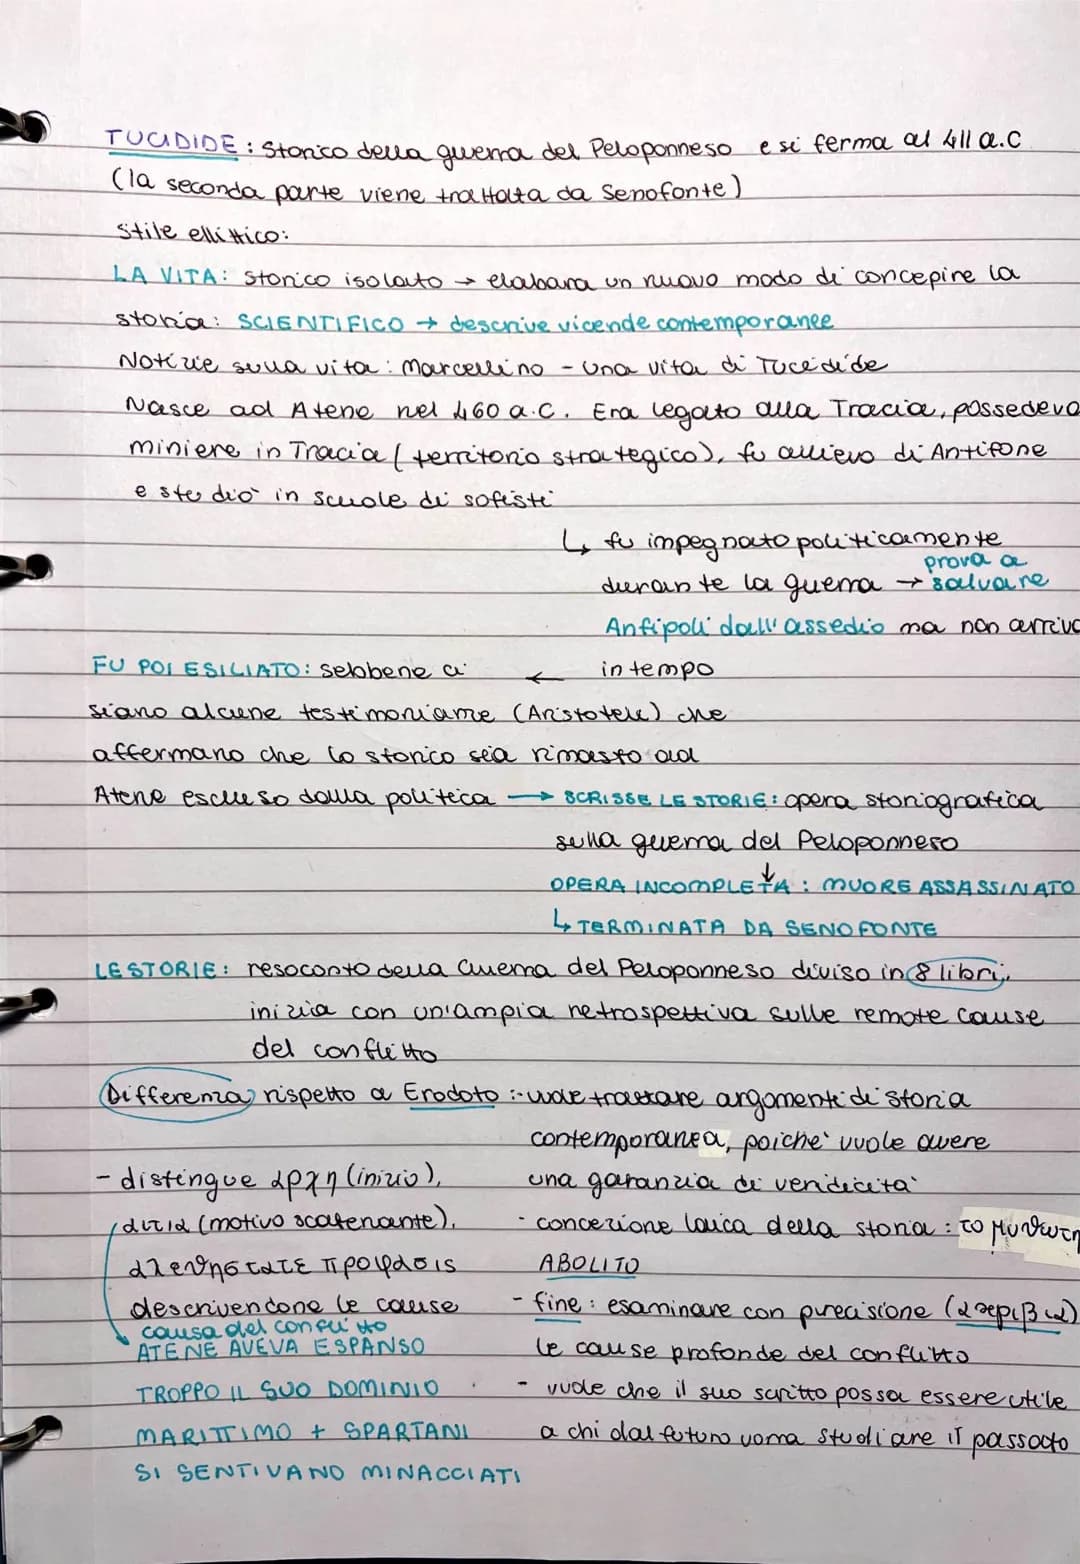 TUCIDIDE: Storico della guerra del Peloponneso e si ferma al 411 a.C
(la seconda parte viene trattata da Senofonte)
Stile ellittico:
LA VITA: storico isolato → elabora un nuovo modo di concepire la
storia: SCIENTIFICO → descrive vicende contemporanee
Notizie sulla vita: Marcellino - una vita di Tucidide
Nasce ad Atene nel 460 a.C. Era legato alla Tracia, possedeva
miniere in Tracia (territorio strategico), fu allievo di Antifone
e studiò in scuole di sofisti
↳ fu impegnato politicamente
durante la guerra → prova a salvare
Anfipoli dall'assedio ma non arriva
in tempo
FU POI ESILIATO: sebbene ci ←
siano alcune testimonianze (Aristotele) che
affermano che lo storico sia rimasto ad
Atene escluso dalla politica → SCRISSE LE STORIE: opera storiografica
sulla guerra del Peloponneso
↓
OPERA INCOMPLETA: MUORE ASSASSINATO
↳ TERMINATA DA SENOFONTE
LE STORIE: resoconto della Guerra del Peloponneso diviso in 8 libri,
inizia con un'ampia retrospettiva sulle remote cause
del conflitto
Differenza rispetto a Erodoto: - vuole trattare argomenti di storia
contemporanea, poichè vuole avere
una garanzia di veridicità
- concezione laica della storia: το μυθωτη
ABOLITO
- fine: esaminare con precisione (ακριβω)
le cause profonde del conflitto
- vuole che il suo scritto possa essere utile
a chi dal futuro vorrà studiare il passato
- distingue αρχη (inizio),
αιτια (motivo scatenante),
αλεθηστατε προφασις
descrivendone le cause
causa del conflitto
ATENE AVEVA ESPANSO
TROPPO IL SUO DOMINIO
MARITTIMO + SPARTANI
SI SENTIVANO MINACCIATI